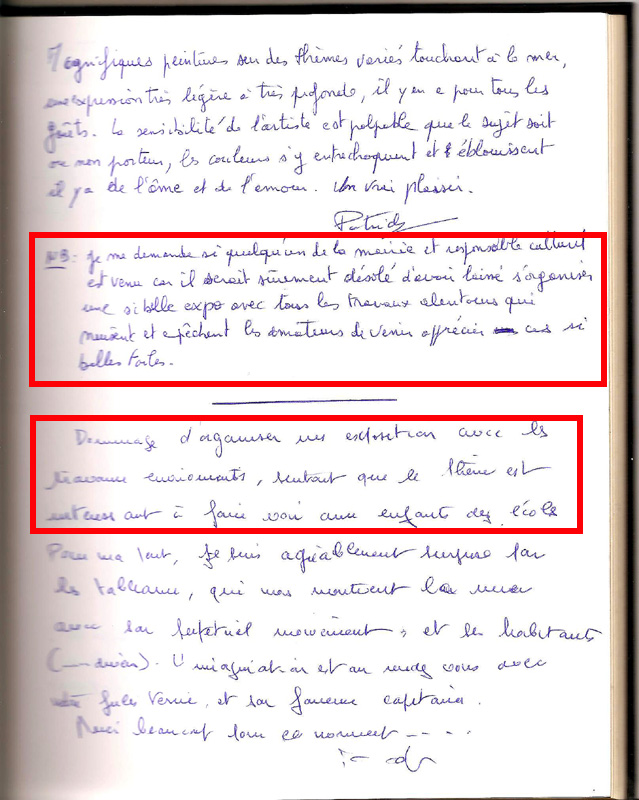 Magnifiques peintures sur des thèmes variés touchant à la mer,
une expression très légère à très profonde, il y en a pour tous les
goûts. La sensibilité de l'artiste est palpable que le sujet soit
ou non porteur, les couleurs s'y entrechoquent et éblouissent
il y a de l'âme et de l'amour. Un vrai plaisir.
NB: je me demande si quelqu'un de la mairie et responsable culturel
est venu car il serait sûrement désolé d'avoir laissé s'organiser
une si belle expo avec tous les travaux alentours qui
nuisent et empêchent les amateurs de venir apprécier ces si
belles toiles.
Dommage d'organiser une exposition avec les
travaux environnants, surtout que le thème est
intéressant à faire voir aux enfants des école
Pour ma part, je suis agréablement surprise par
les tableaux, qui nous montrent la mer
avec son perpétuel mouvement, et ses habitants
L'imagination est au rendez vous avec
notre Jules Verne, et son fameux capitaine.
Merci beaucoup pour ce moment ----